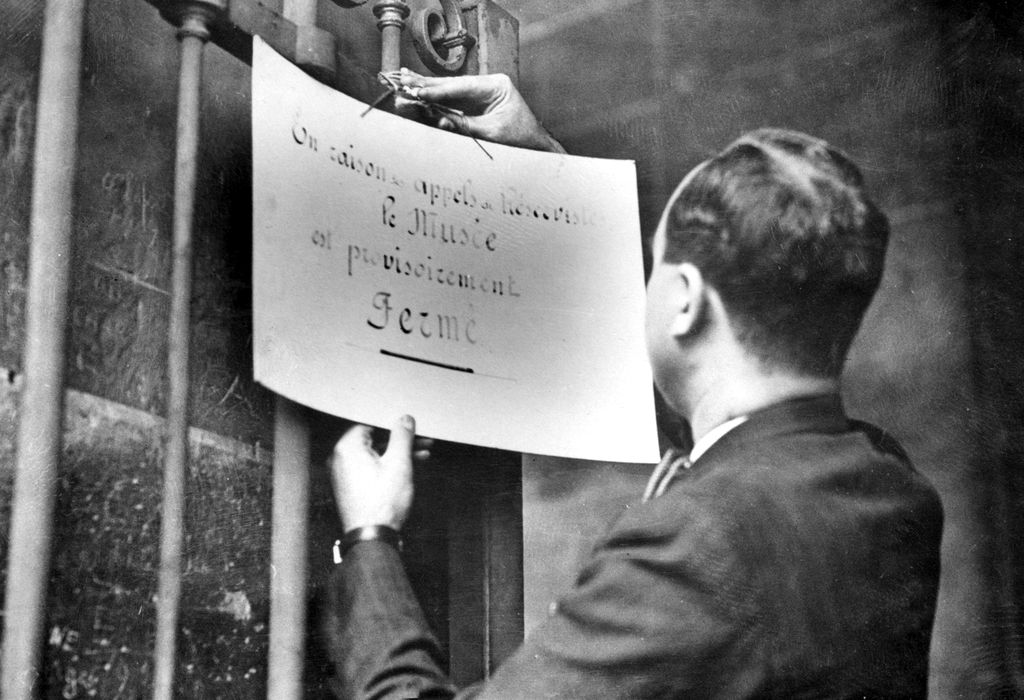 En raison des appels de Réservistes
le Musée
est provisoirement
Fermé